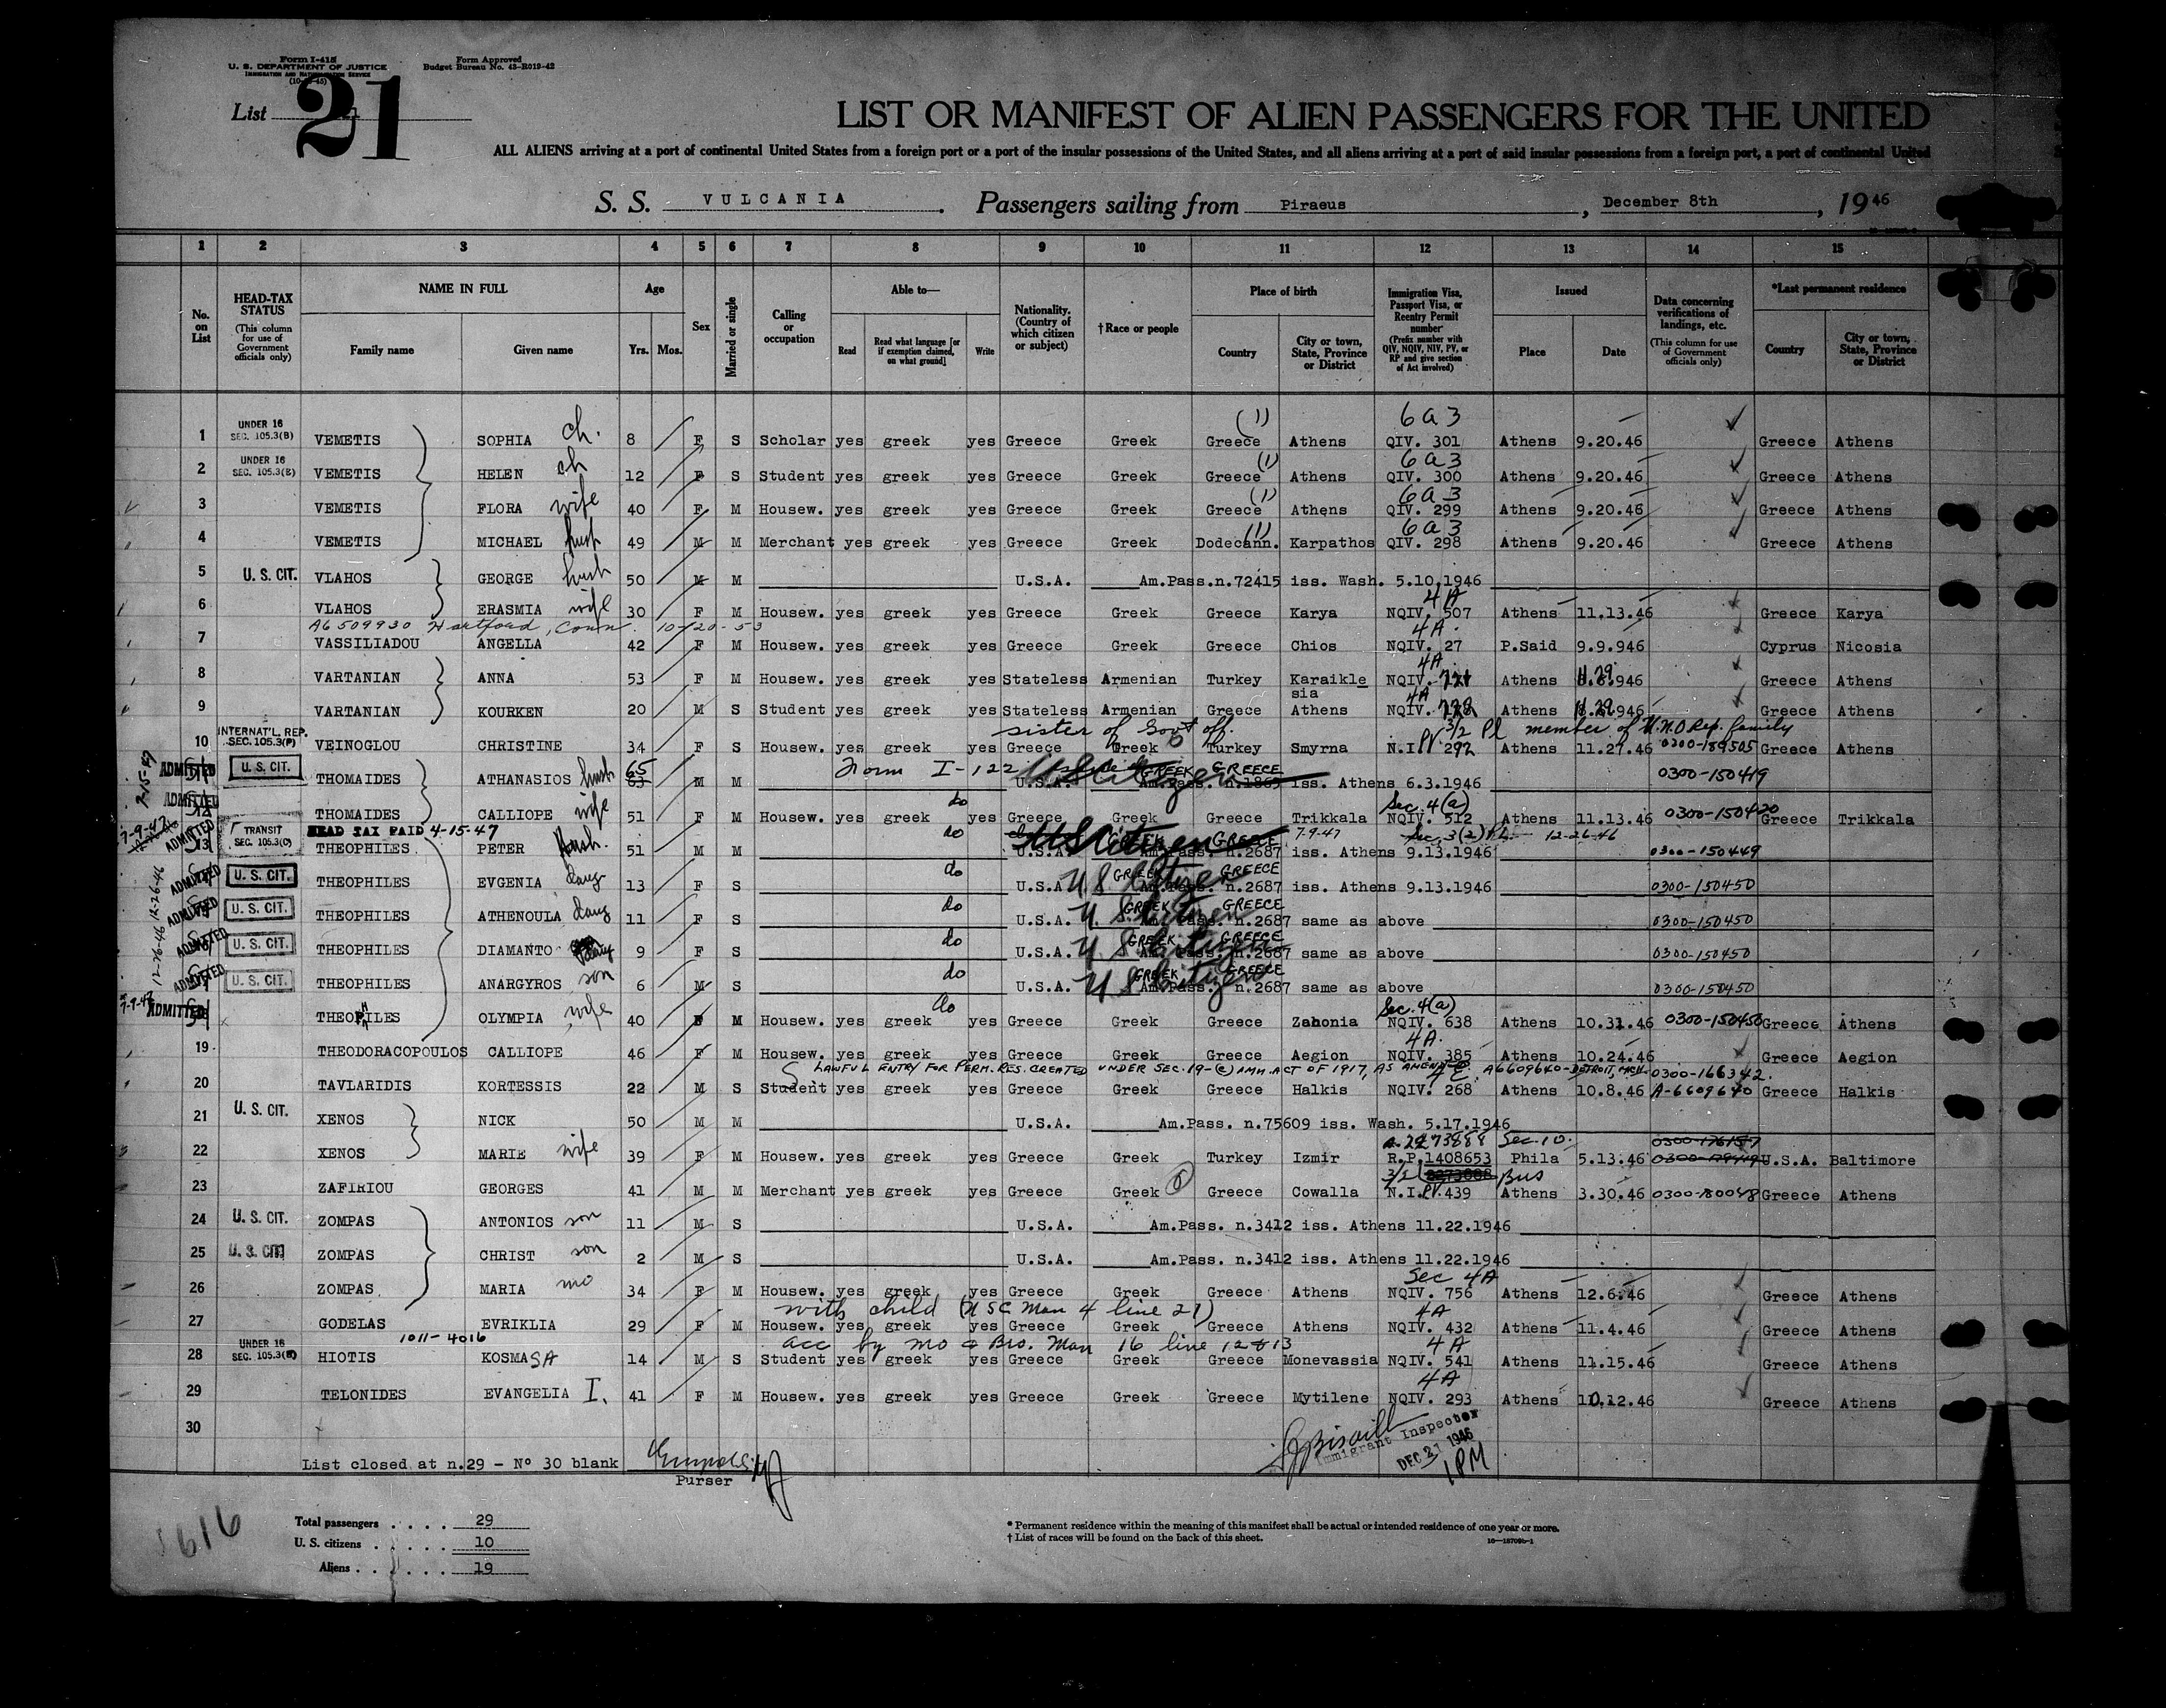 Form I-415
U. S. DEPARTMENT OF JUSTICE
IMMIGRATION AND NATURALIZATION SERVICE
Form Approved
Budget Bureau No. 43-R019-42
List 21
LIST OR MANIFEST OF ALIEN PASSENGERS FOR THE UNITED
ALL ALIENS arriving at a port of continental United States from a foreign port or a port of the insular possessions of the United States, and all aliens arriving at a port of said insular possessions from a foreign port, a port of continental United
S. S. VULCANIA. Passengers sailing from Piraeus, December 8th, 1946
1 2 3 4 5 6 7 8 9 10 11 12 13 14 15
No. on List
HEAD-TAX STATUS (This column for use of Government officials only)
NAME IN FULL Family name Given name
Age Yrs. Mos.
Sex
Married or single
Calling or occupation
Able to— Read Read what language [or if exemption claimed, on what ground] Write
Nationality. (Country of which citizen or subject)
†Race or people
Place of birth Country City or town, State, Province or District
Immigration Visa, Passport Visa, or Reentry Permit number (Prefix number with QIV, NQIV, NIV, PV, or RP and give section of Act involved)
Issued Place Date
Data concerning verifications of landings, etc. (This column for use of Government officials only)
*Last permanent residence Country City or town, State, Province or District
UNDER 16 (1) 6a3
1 SEC. 105.3(B) VEMETIS SOPHIA ch. 8 F S Scholar yes greek yes Greece Greek Greece Athens QIV. 301 Athens 9.20.46 Greece Athens
UNDER 16 (1) 6a3
2 SEC. 105.3(B) VEMETIS HELEN ch 12 F S Student yes greek yes Greece Greek Greece Athens QIV. 300 Athens 9.20.46 Greece Athens
(1) 6a3
3 VEMETIS FLORA wife 40 F M Housew. yes greek yes Greece Greek Greece Athens QIV. 299 Athens 9.20.46 Greece Athens
(1) 6a3
4 VEMETIS MICHAEL husb 49 M M Merchant yes greek yes Greece Greek Dodecann. Karpathos QIV. 298 Athens 9.20.46 Greece Athens
5 U. S. CIT. VLAHOS GEORGE husb 50 M M U.S.A. Am.Pass.n.72415 iss. Wash. 5.10.1946
4A
6 VLAHOS ERASMIA wife 30 F M Housew. yes greek yes Greece Greek Greece Karya NQIV. 507 Athens 11.13.46 Greece Karya
A6509930 Hartford, Conn. 10-20-53 4A.
7 VASSILIADOU ANGELLA 42 F M Housew. yes greek yes Greece Greek Greece Chios NQIV. 27 P.Said 9.9.946 Cyprus Nicosia
4A
8 VARTANIAN ANNA 53 F M Housew. yes greek yes Stateless Armenian Turkey Karaiklesia NQIV. Athens 946 Greece Athens
4A
9 VARTANIAN KOURKEN 20 M S Student yes greek yes Stateless Armenian Greece Athens NQIV. Athens 946 Greece Athens
INTERNAT'L. REP. sister of Gov't off. 3/2 Pl member of U.N.O Rep. family
10 SEC. 105.3(P) VEINOGLOU CHRISTINE 34 F S Housew. yes greek yes Greece Greek Turkey Smyrna N.I.PV 292 Athens 11.27.46 0300-189505 Greece Athens
7-15-47 ADMITTED U. S. CIT. 65 Form I-122 US Citizen GREEK GREECE 0300-150419
THOMAIDES ATHANASIOS husb 63 M M U.S.A. Am.Pass. n.1869 iss. Athens 6.3.1946
ADMITTED do Sec. 4(a)
THOMAIDES CALLIOPE wife 51 F M Housew. yes greek yes Greece Greek Greece Trikkala NQIV. 512 Athens 11.13.46 0300-150420 Greece Trikkala
7-9-47 ADMITTED TRANSIT SEC. 105.3(C) HEAD TAX PAID 4-15-47 do US Citizen GREECE 7-9-47 Sec. 3(2) 12-26-46
THEOPHILES PETER Hush. 51 M M U.S.A. Am.Pass. n.2687 iss. Athens 9.13.1946 0300-150449
12-26-46 ADMITTED U. S. CIT. do GREEK GREECE
THEOPHILES EVGENIA daug 13 F S U.S.A. U S Citizen Am.Pass. n.2687 iss. Athens 9.13.1946 0300-150450
ADMITTED U. S. CIT. do GREEK GREECE
THEOPHILES ATHENOULA daug 11 F S U.S.A. U S Citizen Am.Pass. n.2687 same as above 0300-150450
12-26-46 ADMITTED U. S. CIT. do GREEK GREECE
THEOPHILES DIAMANTO daug 9 F S U.S.A. U S Citizen Am.Pass. n.2687 same as above 0300-150450
ADMITTED U. S. CIT. do GREEK GREECE
THEOPHILES ANARGYROS son 6 M S U.S.A. U S Citizen Am.Pass. n.2687 same as above 0300-150450
7-9-47 ADMITTED do Sec. 4(a)
THEOPHILES OLYMPIA wife 40 F M Housew. yes greek yes Greece Greek Greece Zahonia NQIV. 638 Athens 10.31.46 0300-150450 Greece Athens
4A.
19 THEODORACOPOULOS CALLIOPE 46 F M Housew. yes greek yes Greece Greek Greece Aegion NQIV. 385 Athens 10.24.46 Greece Aegion
LAWFUL ENTRY FOR PERM. RES. CREATED UNDER SEC. 19-(c) IMM. ACT OF 1917, AS AMENDED. A6609640-DETROIT, MICH. 0300-166342.
4E
20 TAVLARIDIS KORTESSIS 22 M S Student yes greek yes Greece Greek Greece Halkis NQIV. 268 Athens 10.8.46 A-6609640 Greece Halkis
21 U. S. CIT. XENOS NICK 50 M M U.S.A. Am.Pass. n.75609 iss. Wash. 5.17.1946
2273888 Sec. 10. 0300-176157
22 XENOS MARIE wife 39 F M Housew. yes greek yes Greece Greek Turkey Izmir R.P.1408653 Phila 5.13.46 U.S.A. Baltimore
3/2 2273888 Bus
23 ZAFIRIOU GEORGES 41 M M Merchant yes greek yes Greece Greek Greece Cowalla N.I.PV.439 Athens 3.30.46 0300-180048 Greece Athens
24 U. S. CIT. ZOMPAS ANTONIOS son 11 M S U.S.A. Am.Pass. n.3412 iss. Athens 11.22.1946
25 U. S. CIT ZOMPAS CHRIST son 2 M S U.S.A. Am.Pass. n.3412 iss. Athens 11.22.1946
Sec 4A
26 ZOMPAS MARIA mo 34 F M Housew. yes greek yes Greece Greek Greece Athens NQIV. 756 Athens 12.6.46 Greece Athens
with child (USC Man 4 line 21) 4A
27 GODELAS EVRIKLIA 29 F M Housew. yes greek yes Greece Greek Greece Athens NQIV. 432 Athens 11.4.46 Greece Athens
UNDER 16 1011-4016 acc by mo & Bro. Man 16 line 12&13 4A
28 SEC. 105.3(B) HIOTIS KOSMASA 14 M S Student yes greek yes Greece Greek Greece Monevassia NQIV. 541 Athens 11.15.46 Greece Athens
4A
29 TELONIDES EVANGELIA I. 41 F M Housew. yes greek yes Greece Greek Greece Mytilene NQIV. 293 Athens 10.12.46 Greece Athens
30
List closed at n.29 - Nº 30 blank
Purser
Immigrant Inspector
DEC 21 1946
1 PM
616
Total passengers . . . . 29
U. S. citizens . . . . . . 10
Aliens . . . . . . . 19
* Permanent residence within the meaning of this manifest shall be actual or intended residence of one year or more.
† List of races will be found on the back of this sheet.